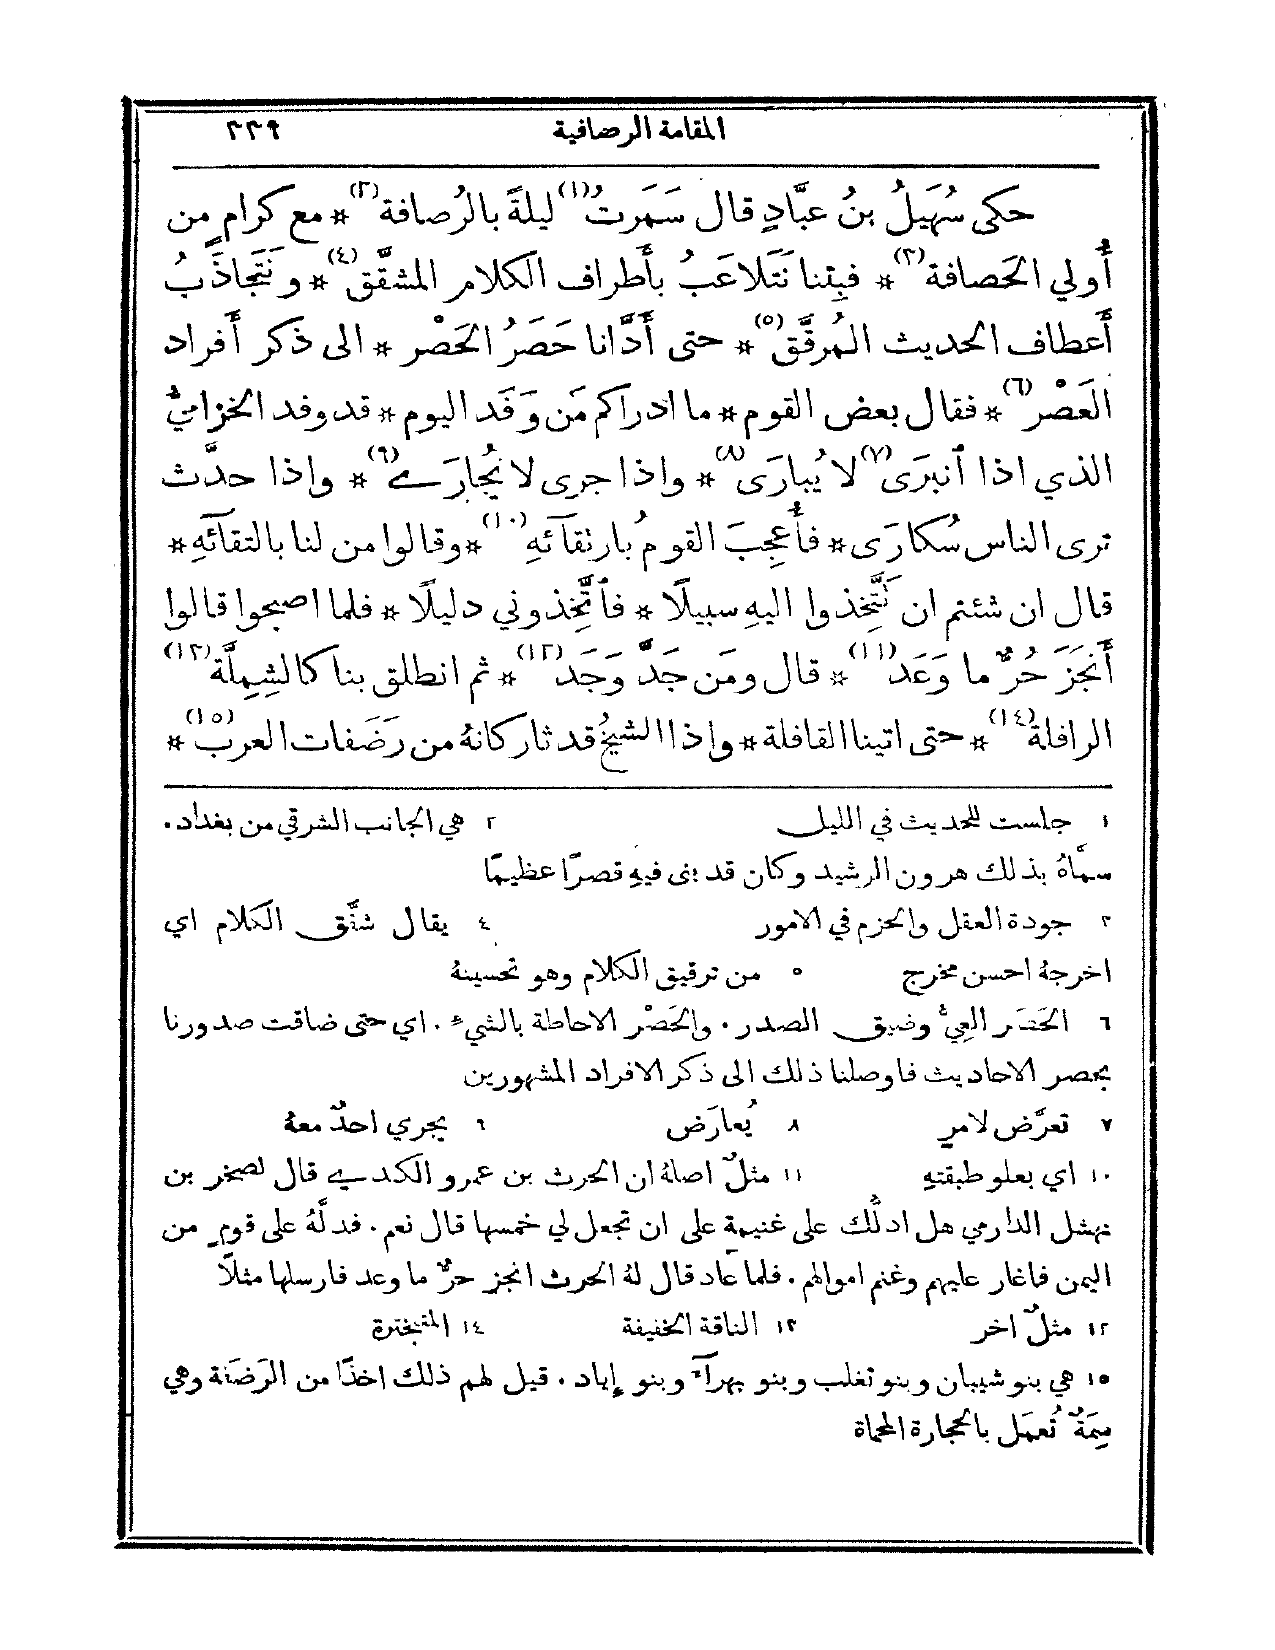 المقامة الرصافية ٢٢٩
حكى سُهَيلُ بنُ عبَّادٍ قال سَمَرتُ(١) ليلةً بالرُصافة(٢) * مع كرامٍ من
أُولي الحَصافة(٣) * فبِتنا نَتَلاعَبُ بأَطراف الكلام المشقَّق(٤) * ونَتَجاذَبُ
أَعطاف الحديث المُرقَّق(٥) * حتى أَدَّانا حَصَرُ الحَصْر * الى ذكر أَفراد
العَصْر(٦) * فقال بعض القوم * ما ادراكم مَن وَفَد اليوم * قد وفد الخزاميُّ
الذي اذا ٱنبرَى(٧) لا يُبارَى(٨) * واذا جرى لا يُجارَے(٩) * واذا حدَّث
ترى الناس سُكارَى * فأُعجِبَ القومُ بارتقآئهِ(١٠) * وقالوا من لنا بالتقآئهِ *
قال ان شئتم ان نتَّخِذوا اليهِ سبيلًا * فٱتَّخِذوني دليلًا * فلما اصبحوا قالوا
أَنجَزَ حُرٌّ ما وَعَد(١١) * قال ومَن جَدَّ وَجَد(١٢) * ثم انطلق بنا كالشِمِلَّة(١٣)
الرافلة(١٤) * حتى اتينا القافلة * واذا الشيخُ قد ثار كانهُ من رَضَفات العرب(١٥) *
١ جلست للحديث في الليل ٢ هي الجانب الشرقي من بغداد .
سمَّاهُ بذلك هرون الرشيد وكان قد بنى فيهِ قصرًا عظيمًا
٣ جودة العقل والحزم في الامور ٤ يقال شقَّق الكلام اي
اخرجهُ احسن مخرج ٥ من ترقيق الكلام وهو تحسينهُ
٦ الحَصَر العِيُّ وضيق الصدر . والحَصْر الاحاطة بالشيء . اي حتى ضاقت صدورنا
بحصر الاحاديث فاوصلنا ذلك الى ذكر الافراد المشهورين
٧ تعرَّض لامرٍ ٨ يُعارَض ٩ يجري احدٌ معهُ
١٠ اي بعلو طبقتهِ ١١ مثلٌ اصلهُ ان الحرث بن عمرو الكندي قال لصخر بن
نهشل الدارمي هل ادلُّك على غنيمة على ان تجعل لي خمسها قال نعم . فدلَّهُ على قومٍ من
اليمن فاغار عليهم وغنم اموالهم . فلما عاد قال لهُ الحرث انجز حرٌّ ما وعد فارسلها مثلًا
١٢ مثلٌ اخر ١٣ الناقة الخفيفة ١٤ المتبخترة
١٥ هي بنو شيبان وبنو تغلب وبنو بهرآء وبنو إياد . قيل لهم ذلك اخذًا من الرَضَفة وهي
سِمَةٌ تُعمَل بالحجارة المحماة